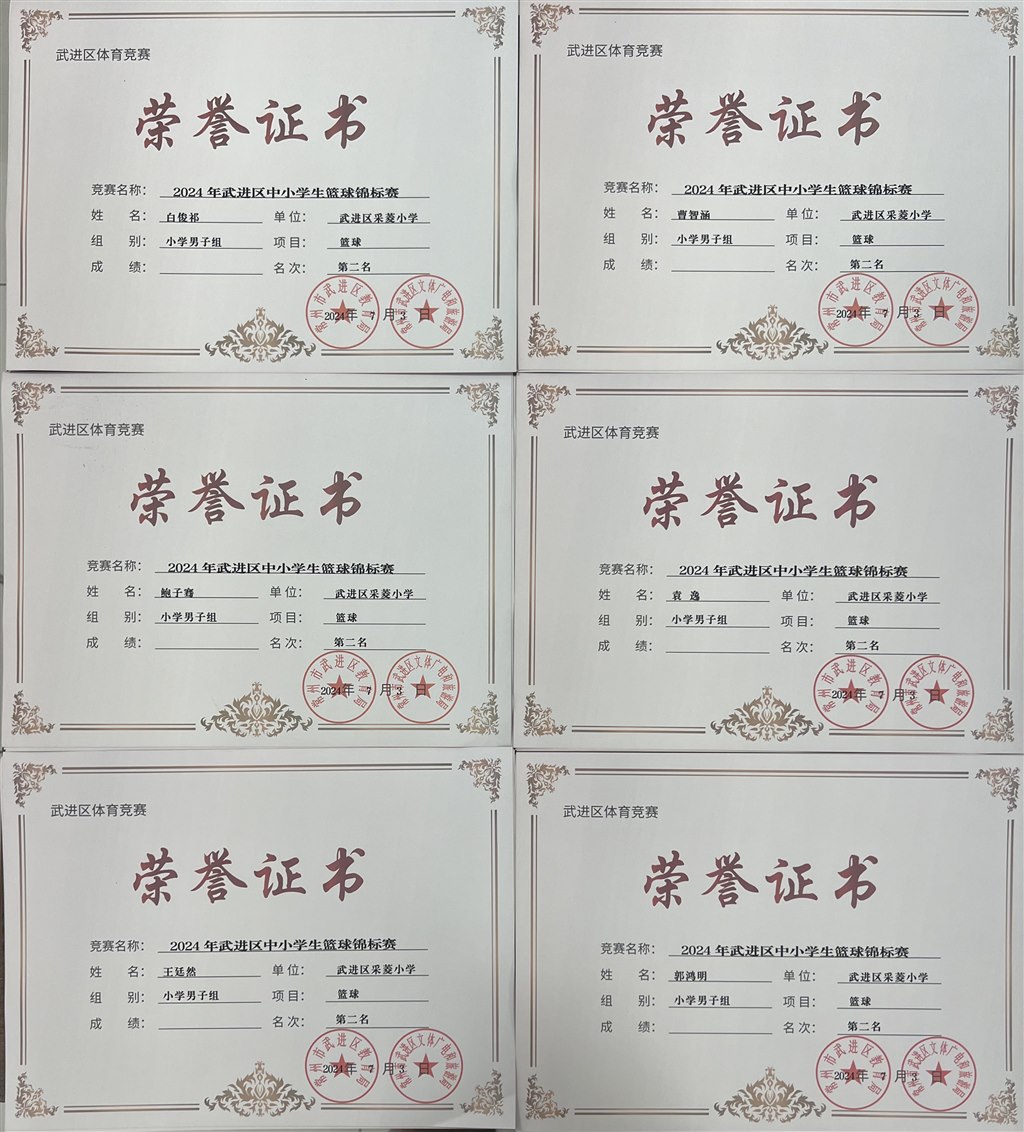 武进区体育竞赛
荣誉证书
竞赛名称： 2024 年武进区中小学生篮球锦标赛
姓 名： 白俊祁 单 位： 武进区采菱小学
组 别： 小学男子组 项 目： 篮球
成 绩： 名 次： 第二名
常州市武进区教育局
常州市武进区文体广电和旅游局
2024年 7 月 3 日
武进区体育竞赛
荣誉证书
竞赛名称： 2024 年武进区中小学生篮球锦标赛
姓 名： 曹智涵 单 位： 武进区采菱小学
组 别： 小学男子组 项 目： 篮球
成 绩： 名 次： 第二名
常州市武进区教育局
常州市武进区文体广电和旅游局
2024年 7 月 3 日
武进区体育竞赛
荣誉证书
竞赛名称： 2024 年武进区中小学生篮球锦标赛
姓 名： 鲍子骞 单 位： 武进区采菱小学
组 别： 小学男子组 项 目： 篮球
成 绩： 名 次： 第二名
常州市武进区教育局
常州市武进区文体广电和旅游局
2024年 7 月 3 日
武进区体育竞赛
荣誉证书
竞赛名称： 2024 年武进区中小学生篮球锦标赛
姓 名： 袁 逸 单 位： 武进区采菱小学
组 别： 小学男子组 项 目： 篮球
成 绩： 名 次： 第二名
常州市武进区教育局
常州市武进区文体广电和旅游局
2024年 7 月 3 日
武进区体育竞赛
荣誉证书
竞赛名称： 2024 年武进区中小学生篮球锦标赛
姓 名： 王廷然 单 位： 武进区采菱小学
组 别： 小学男子组 项 目： 篮球
成 绩： 名 次： 第二名
常州市武进区教育局
常州市武进区文体广电和旅游局
2024年 7 月 3 日
武进区体育竞赛
荣誉证书
竞赛名称： 2024 年武进区中小学生篮球锦标赛
姓 名： 郭鸿明 单 位： 武进区采菱小学
组 别： 小学男子组 项 目： 篮球
成 绩： 名 次： 第二名
常州市武进区教育局
常州市武进区文体广电和旅游局
2024年 7 月 3 日